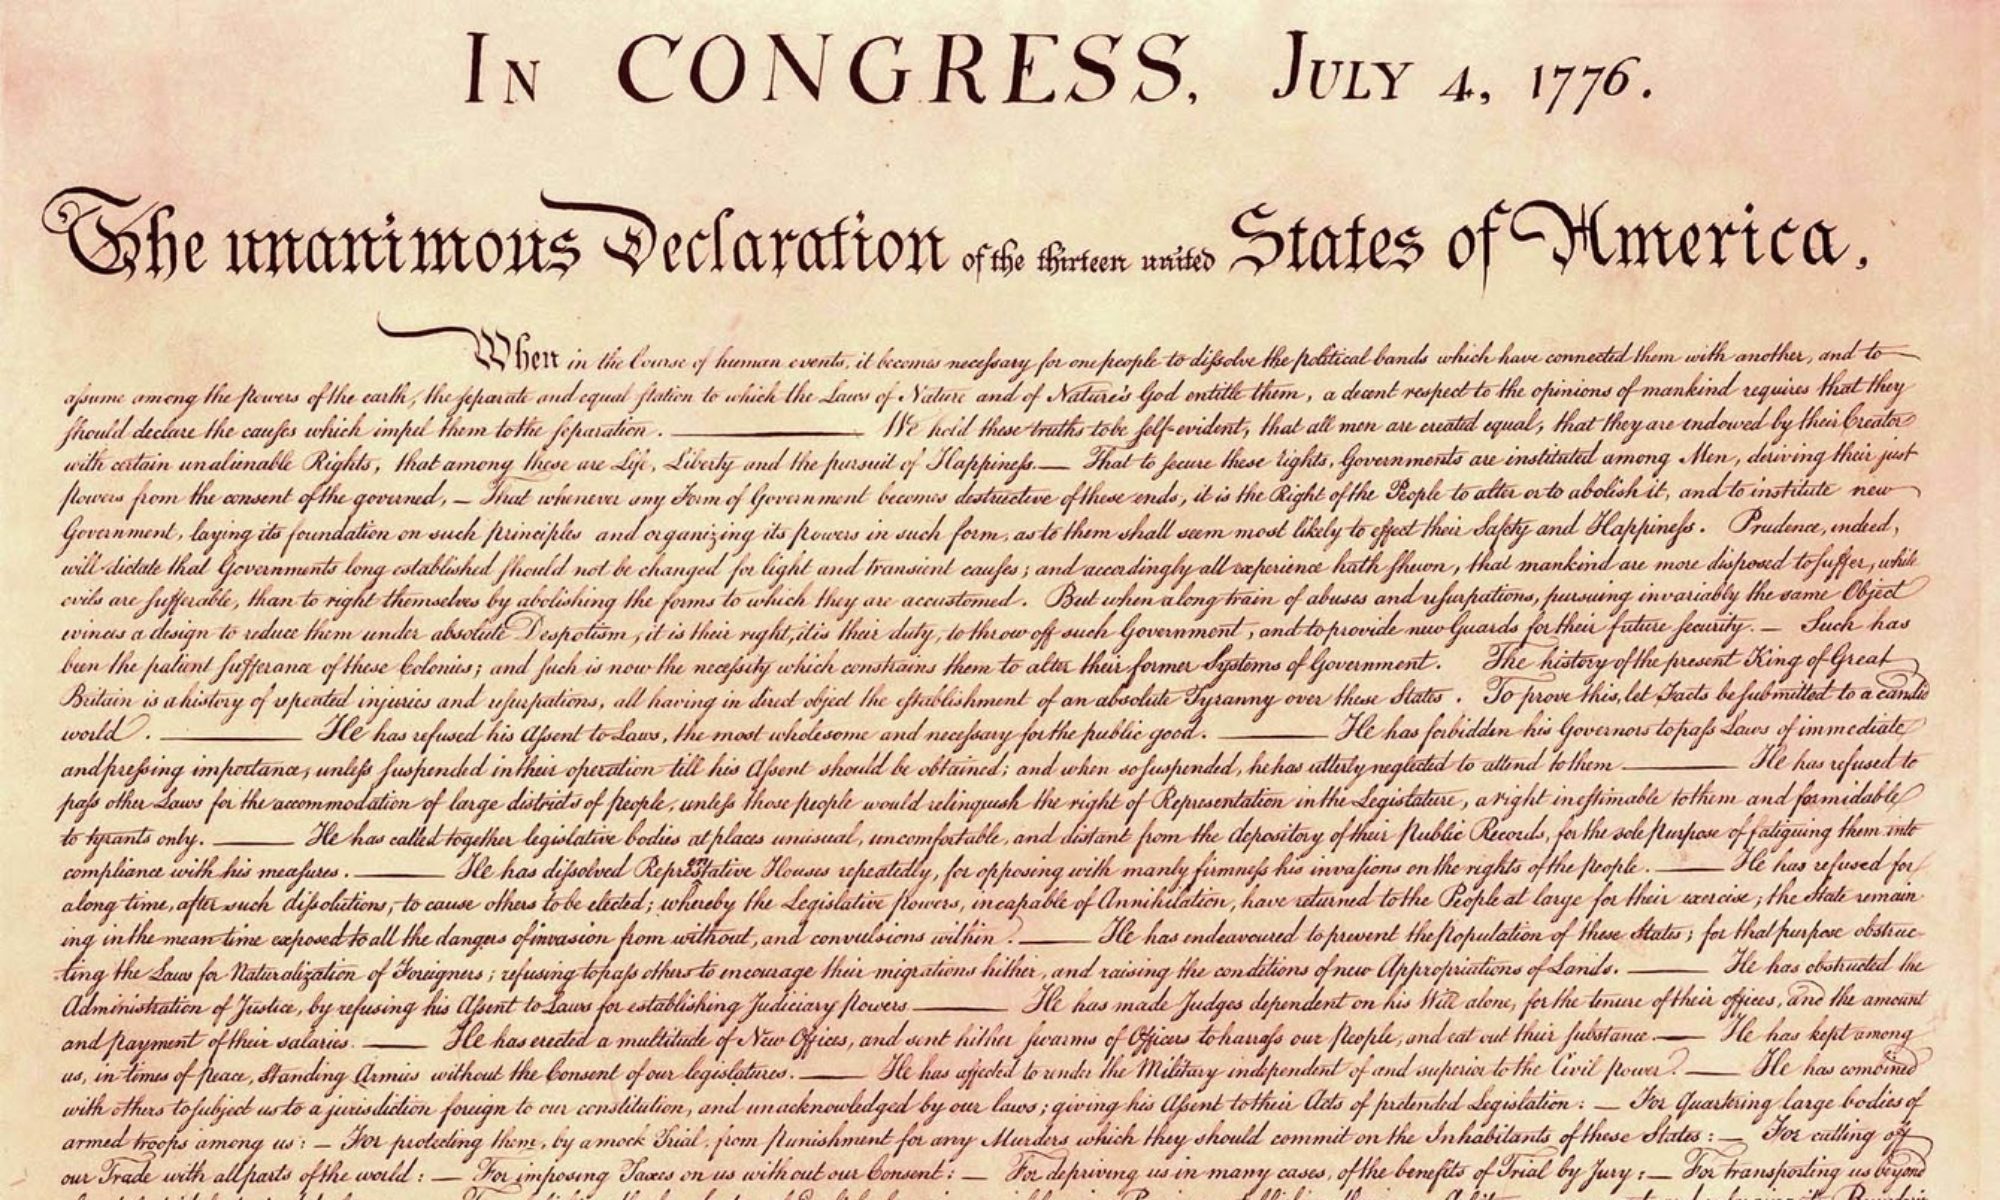 In CONGRESS, July 4, 1776.
The unanimous Declaration of the thirteen united States of America,
When in the Course of human events, it becomes necessary for one people to dissolve the political bands which have connected them with another, and to
assume among the powers of the earth, the separate and equal station to which the Laws of Nature and of Nature's God entitle them, a decent respect to the opinions of mankind requires that they
should declare the causes which impel them to the separation. — We hold these truths to be self-evident, that all men are created equal, that they are endowed by their Creator
with certain unalienable Rights, that among these are Life, Liberty and the pursuit of Happiness. — That to secure these rights, Governments are instituted among Men, deriving their just
powers from the consent of the governed, — That whenever any Form of Government becomes destructive of these ends, it is the Right of the People to alter or to abolish it, and to institute new
Government, laying its foundation on such principles and organizing its powers in such form, as to them shall seem most likely to effect their Safety and Happiness. Prudence, indeed,
will dictate that Governments long established should not be changed for light and transient causes; and accordingly all experience hath shewn, that mankind are more disposed to suffer, while
evils are sufferable, than to right themselves by abolishing the forms to which they are accustomed. But when a long train of abuses and usurpations, pursuing invariably the same Object
evinces a design to reduce them under absolute Despotism, it is their right, it is their duty, to throw off such Government, and to provide new Guards for their future security. — Such has
been the patient sufferance of these Colonies; and such is now the necessity which constrains them to alter their former Systems of Government. The history of the present King of Great
Britain is a history of repeated injuries and usurpations, all having in direct object the establishment of an absolute Tyranny over these States. To prove this, let Facts be submitted to a candid
world. — He has refused his Assent to Laws, the most wholesome and necessary for the public good. — He has forbidden his Governors to pass Laws of immediate
and pressing importance, unless suspended in their operation till his Assent should be obtained; and when so suspended, he has utterly neglected to attend to them — He has refused to
pass other Laws for the accommodation of large districts of people, unless those people would relinquish the right of Representation in the Legislature, a right inestimable to them and formidable
to tyrants only. — He has called together legislative bodies at places unusual, uncomfortable, and distant from the depository of their Public Records, for the sole purpose of fatiguing them into
compliance with his measures. — He has dissolved Representative Houses repeatedly, for opposing with manly firmness his invasions on the rights of the people. — He has refused for
a long time, after such dissolutions, to cause others to be elected; whereby the Legislative powers, incapable of Annihilation, have returned to the People at large for their exercise; the State remain-
ing in the mean time exposed to all the dangers of invasion from without, and convulsions within. — He has endeavoured to prevent the population of these States; for that purpose obstruc-
ting the Laws for Naturalization of Foreigners; refusing to pass others to encourage their migrations hither, and raising the conditions of new Appropriations of Lands. — He has obstructed the
Administration of Justice, by refusing his Assent to Laws for establishing Judiciary powers — He has made Judges dependent on his Will alone, for the tenure of their offices, and the amount
and payment of their salaries. — He has erected a multitude of New Offices, and sent hither swarms of Officers to harrass our people, and eat out their substance. — He has kept among
us, in times of peace, Standing Armies without the Consent of our legislatures. — He has affected to render the Military independent of and superior to the Civil power. — He has combined
with others to subject us to a jurisdiction foreign to our constitution, and unacknowledged by our laws; giving his Assent to their Acts of pretended Legislation: — For Quartering large bodies of
armed troops among us: — For protecting them, by a mock Trial, from punishment for any Murders which they should commit on the Inhabitants of these States: — For cutting off
our Trade with all parts of the world: — For imposing Taxes on us without our Consent: — For depriving us in many cases, of the benefits of Trial by Jury: — For transporting us beyond